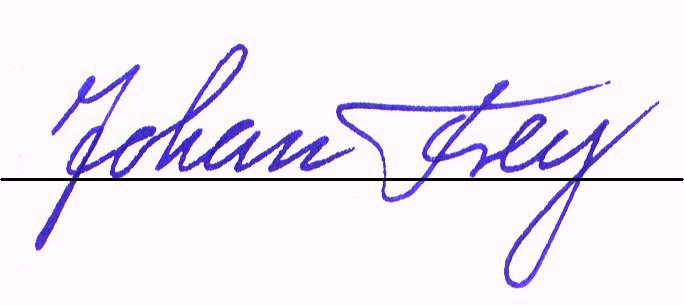 Johan Frey